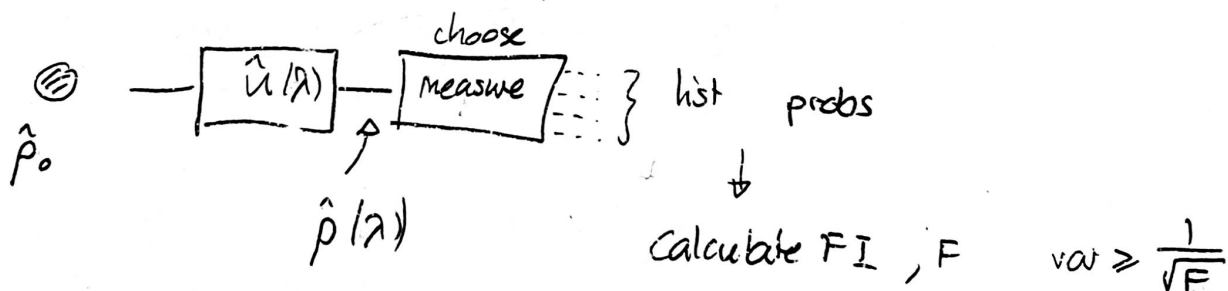 choose
Û(λ) measure } list probs
ρ̂₀
ρ̂(λ)
Calculate FI , F var ≥ 1/√F